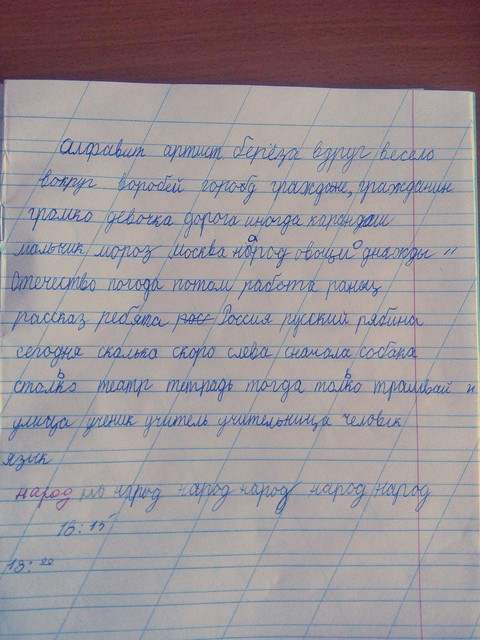 Алфавит артист берёза вдруг весело
вокруг воробей город граждане, гражданин
громко девочка дорога иногда карандаш
мальчик мороз Москва народ овощи однажды
Отечество погода потом работа ранец
рассказ ребята рос Россия русский рябина
сегодня сколька скоро слева сначала собака
столько театр тетрадь тогда только трамвай и
улица ученик учитель учительница человек
язык
народ народ народ народ народ народ
16:15
13:00